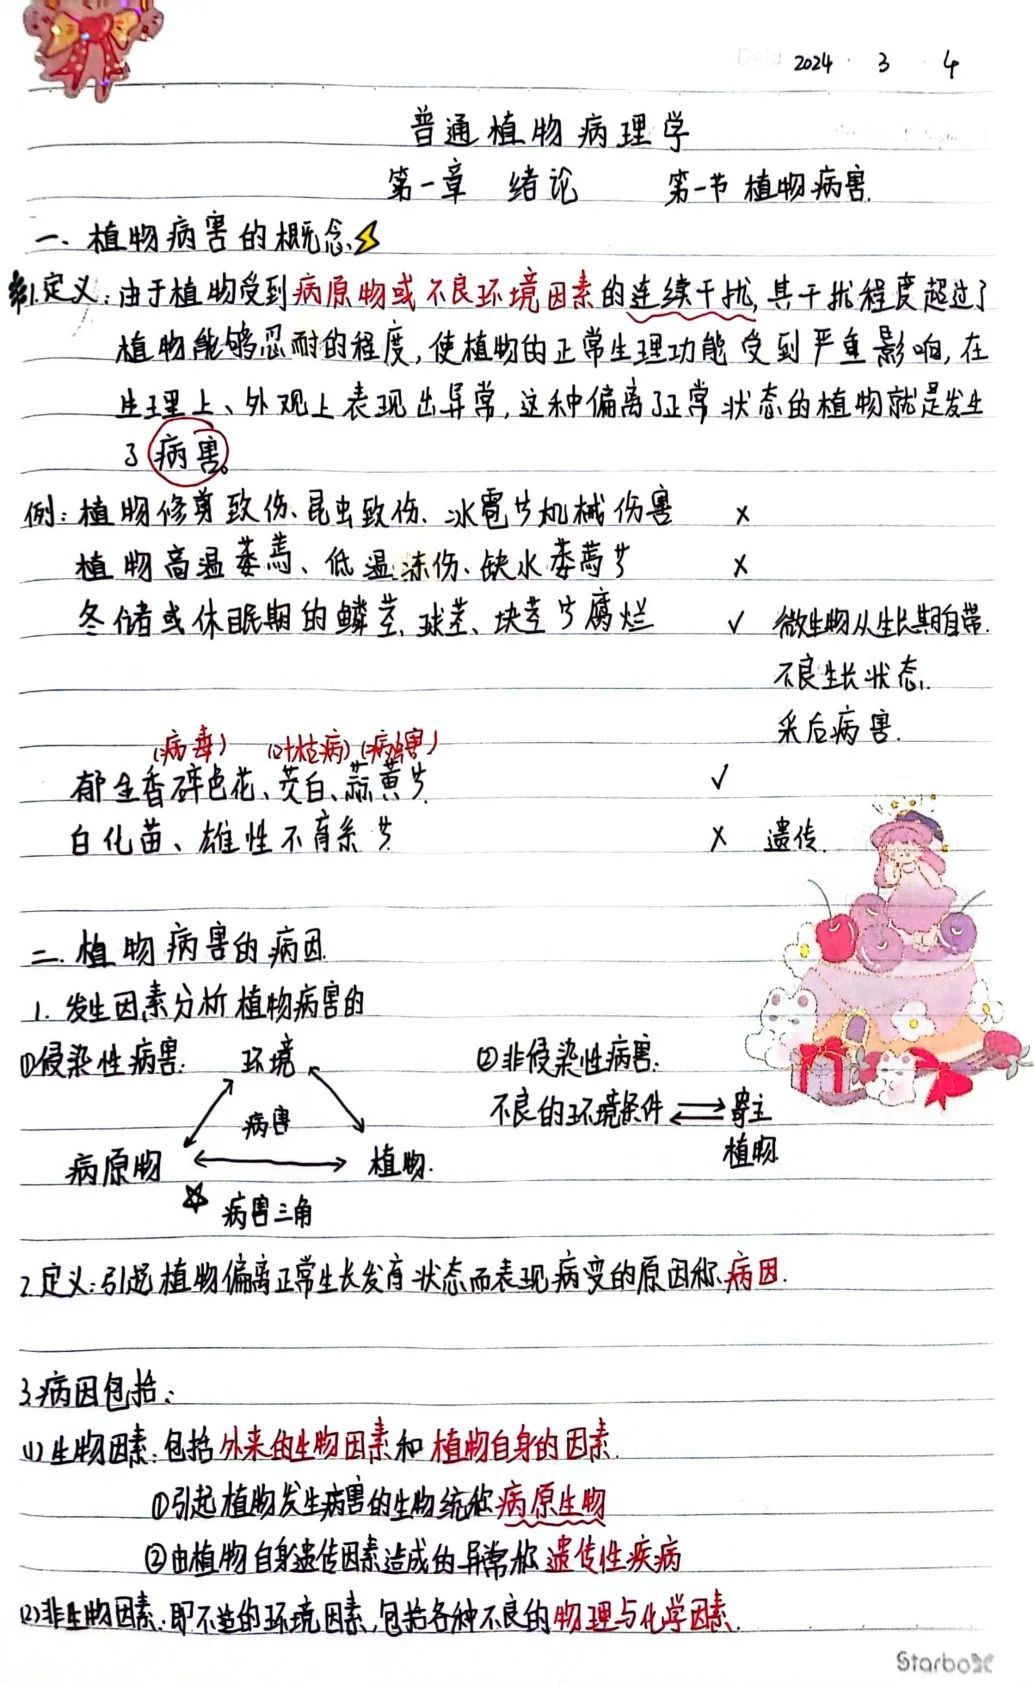 2024 3 4
普通植物病理学
第一章 绪论 第一节 植物病害.
一、植物病害的概念
1.定义:由于植物受到病原物或不良环境因素的连续干扰,其干扰程度超过了
植物能够忍耐的程度,使植物的正常生理功能受到严重影响,在
生理上、外观上表现出异常,这种偏离了正常状态的植物就是发生
了病害。
例:植物修剪致伤、昆虫致伤、冰雹等机械伤害 ×
植物高温萎蔫、低温冻伤、缺水萎蔫等 ×
冬储或休眠期的鳞茎、球茎、块茎等腐烂 √ 微生物从生长期自带.
不良生长状态.
采后病害.
(病毒)
郁金香碎色花、茭白、蒜黄等. √
白化苗、雄性不育系等 × 遗传.
二.植物病害的病因.
1.发生因素分析植物病害的
①侵染性病害: 环境 ②非侵染性病害:
病害 不良的环境条件 寄主
病原物 植物. 植物
☆ 病害三角
2.定义:引起植物偏离正常生长发育状态而表现病变的原因称病因.
3.病因包括:
(1)生物因素:包括外来的生物因素和植物自身的因素.
①引起植物发生病害的生物统称病原生物
②由植物自身遗传因素造成的异常称遗传性疾病
(2)非生物因素:即不适的环境因素,包括各种不良的物理与化学因素.
Starbox